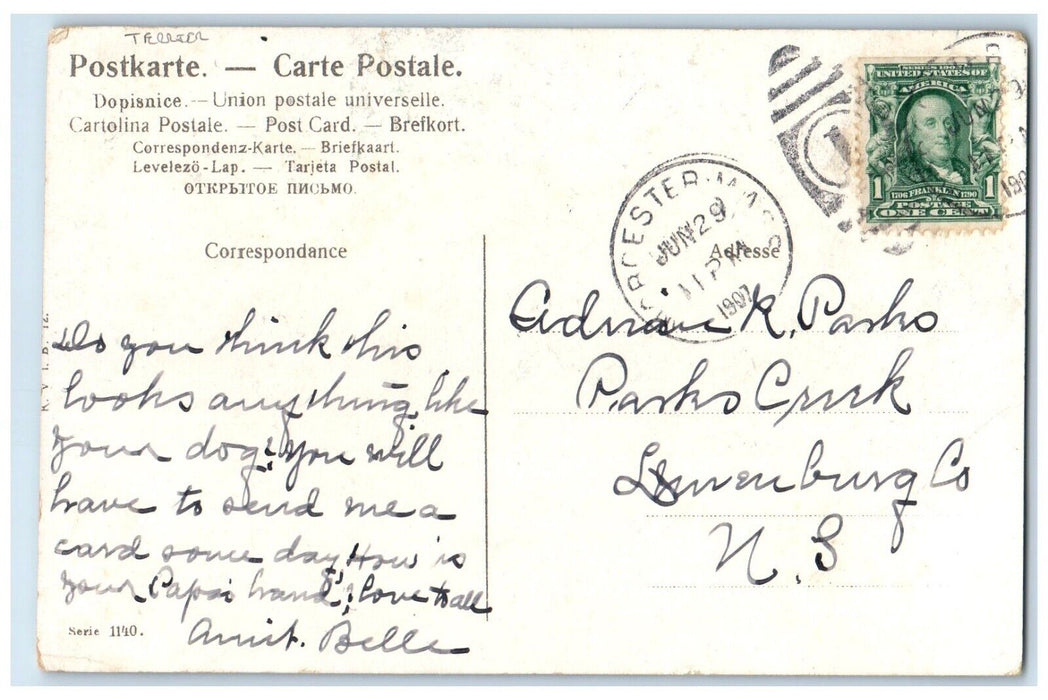 TERRIER
Postkarte. — Carte Postale.
Dopisnice. — Union postale universelle.
Cartolina Postale. — Post Card. — Brefkort.
Correspondenz-Karte. — Briefkaart.
Levelező-Lap. — Tarjeta Postal.
ОТКРЫТОЕ ПИСЬМО.
SERIES 1902
UNITED STATES OF
AMERICA
1 1706 FRANKLIN 1790 1
POSTAGE
ONE CENT
WORCESTER·MASS
JUN 29
11 PM
1907
Correspondance
Adresse
Do you think this
looks anything like
your dog? You will
have to send me a
card some day, How is
your Papa's hand? love to all
Aunt. Belle
Adrian K. Parks
Parks Creek
Lunenburg Co
N. S
Serie 1140.